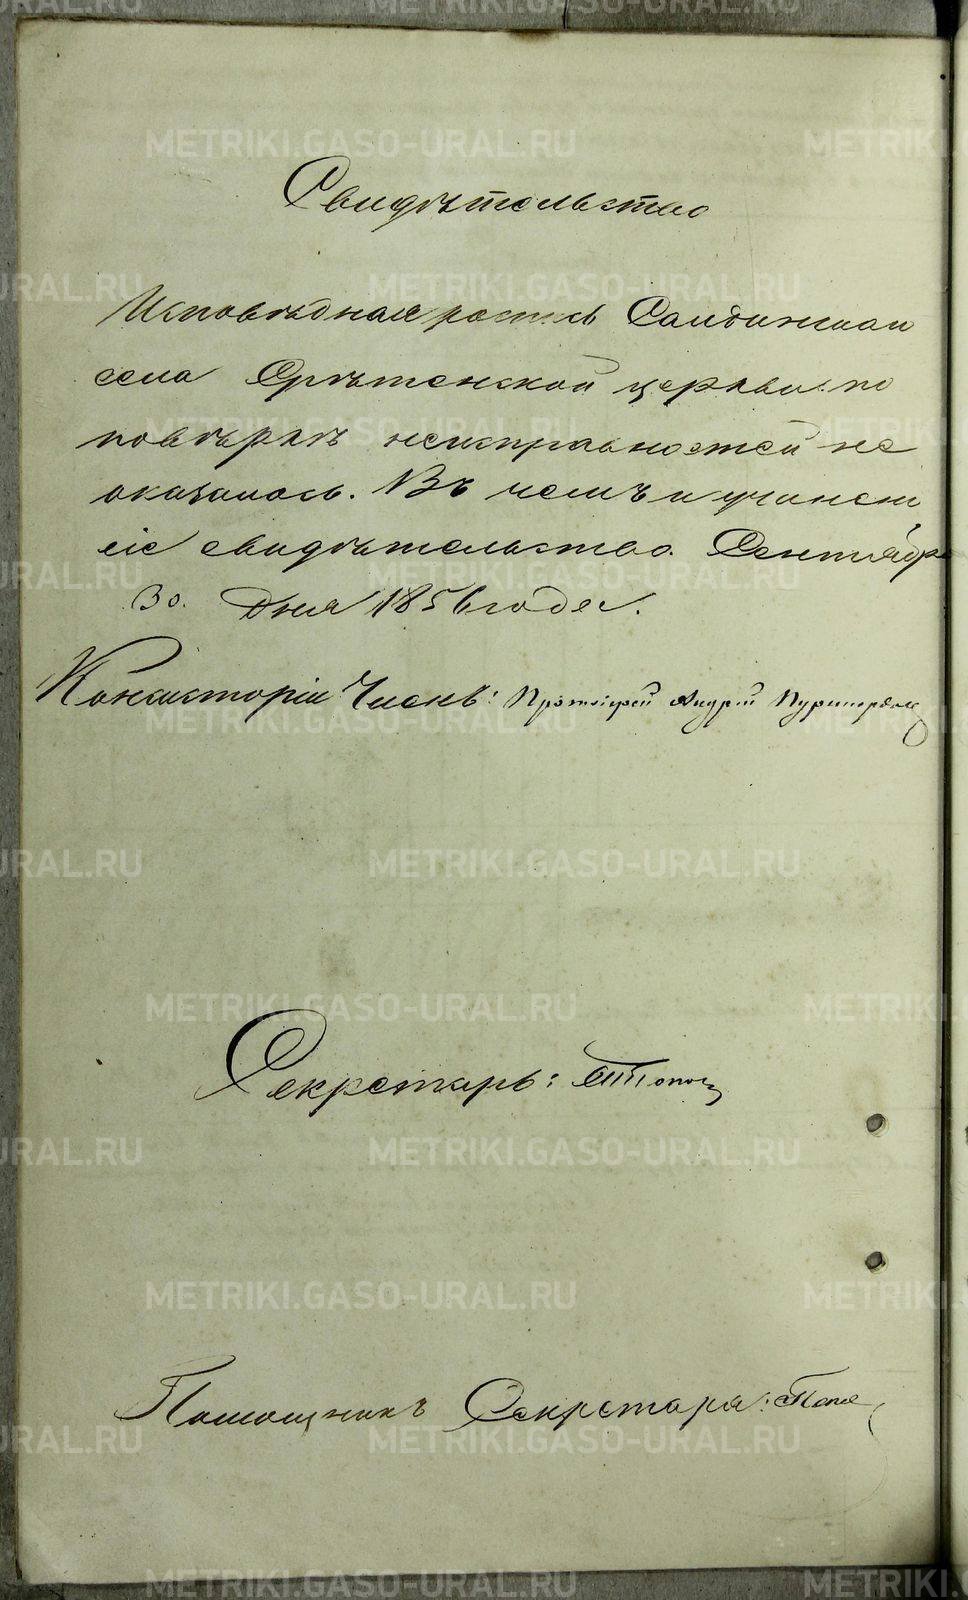 Свидѣтельство
Исповѣдная роспись Салдинскаго
села Срѣтенской церкви по
повѣркѣ неисправностей не
оказалось. Въ чемъ и учинено
сіе свидѣтельство. Сентября
30. Дня 1856 года.
Консисторіи Членъ: Протоіерей Андрей
Секретарь: Попов
Помощникъ Секретаря: Попов
METRIKI.GASO-URAL.RU